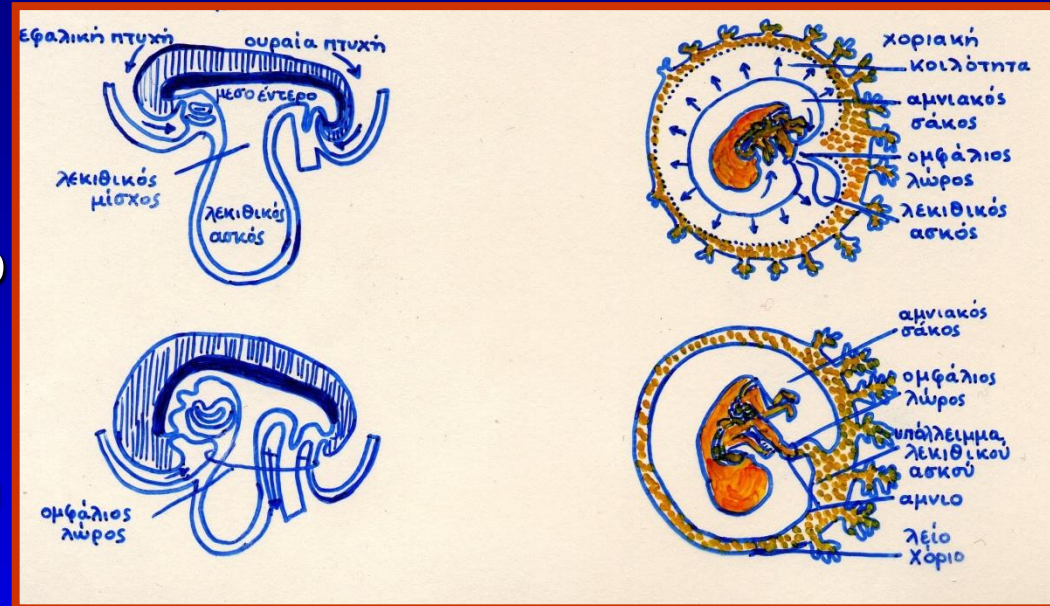 εφαλική πτυχή
ουραία πτυχή
μεσο έντερο
λεκιθικός
μίσχος
λεκιθικός
ασκός
χοριακή
κοιλότητα
αμνιακός
σάκος
ομφάλιος
λώρος
λεκιθικός
ασκός
ομφάλιος
λώρος
αμνιακός
σάκος
ομφάλιος
λώρος
υπόλλειμμα
λεκιθικού
ασκού
αμνιο
λείο
χόριο